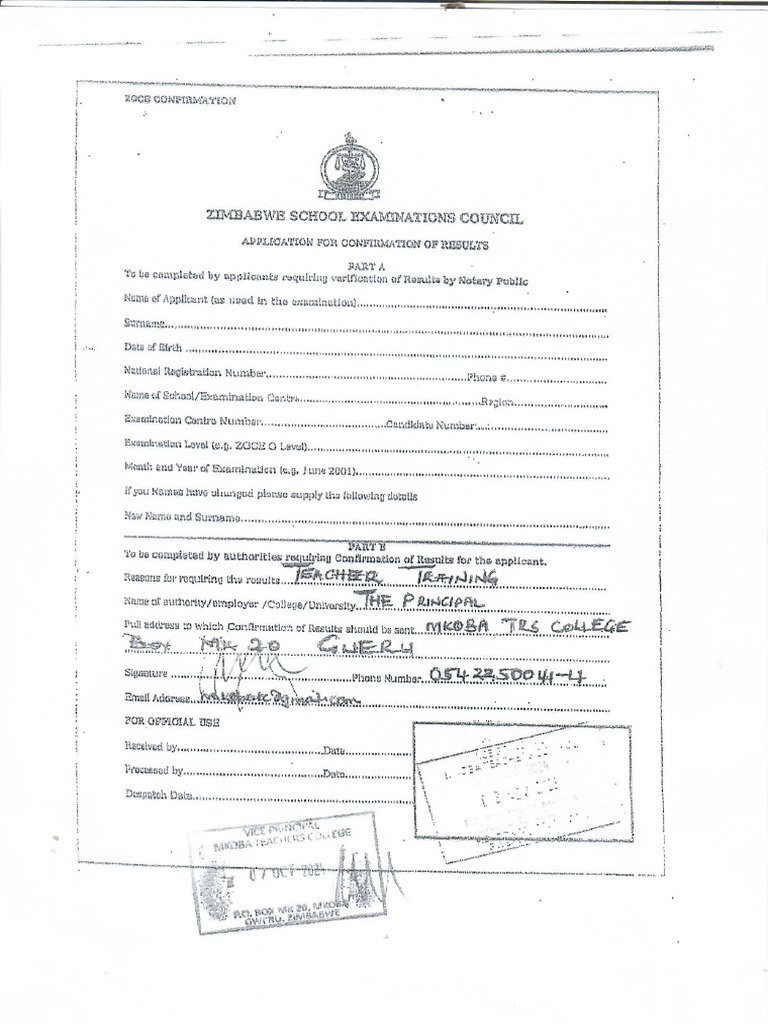 ZGCE CONFIRMATION
ZIMBABWE SCHOOL EXAMINATIONS COUNCIL
APPLICATION FOR CONFIRMATION OF RESULTS
PART A
To be completed by applicants requiring verification of Results by Notary Public
Name of Applicant (as used in the examination)
Surname
Date of Birth
National Registration Number Phone #
Name of School/Examination Centre Region
Examination Centre Number Candidate Number
Examination Level (e.g. ZGCE O Level)
Month and Year of Examination (e.g. June 2001)
If you Names have changed please supply the following details
New Name and Surname
PART B
To be completed by authorities requiring Confirmation of Results for the applicant.
Reasons for requiring the results TEACHER TRAINING
Name of authority/employer /College/University THE PRINCIPAL
Full address to which Confirmation of Results should be sent MKOBA TRS COLLEGE
Box MK 20 GWERU
Signature Phone Number
Email Address
FOR OFFICIAL USE
Received by Date
Processed by Date
Despatch Date
VICE PRINCIPAL
MKOBA TEACHERS COLLEGE
07 OCT 2024
P.O. BOX MK 20, MKOBA
GWERU, ZIMBABWE